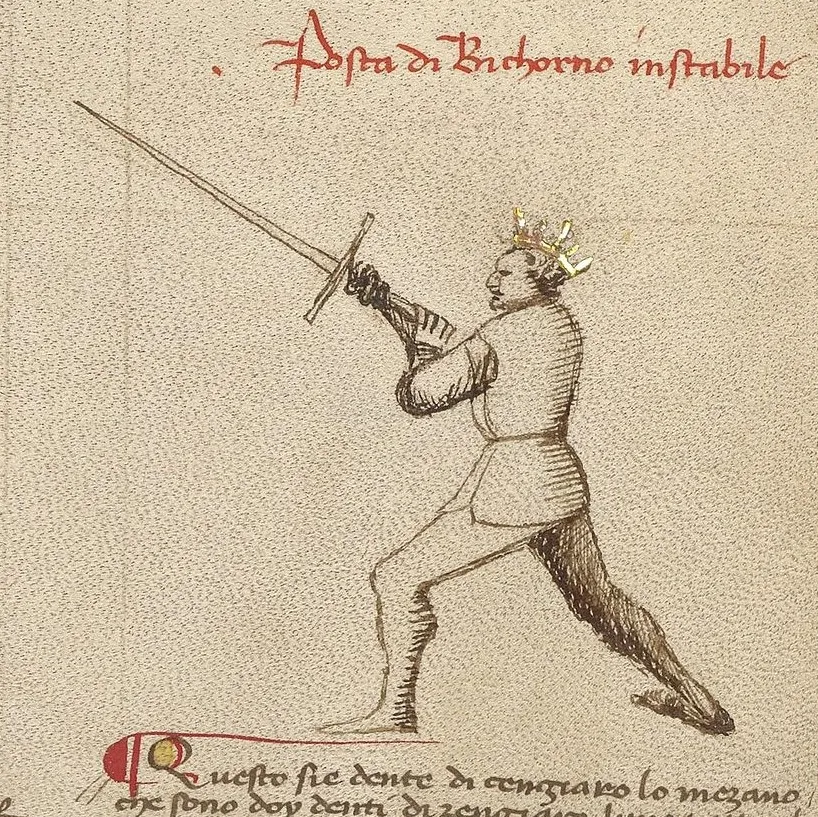 Posta di Bichorno instabile
Questo sie dente di cengiaro lo mezano
che sono doy denti di zengiaro